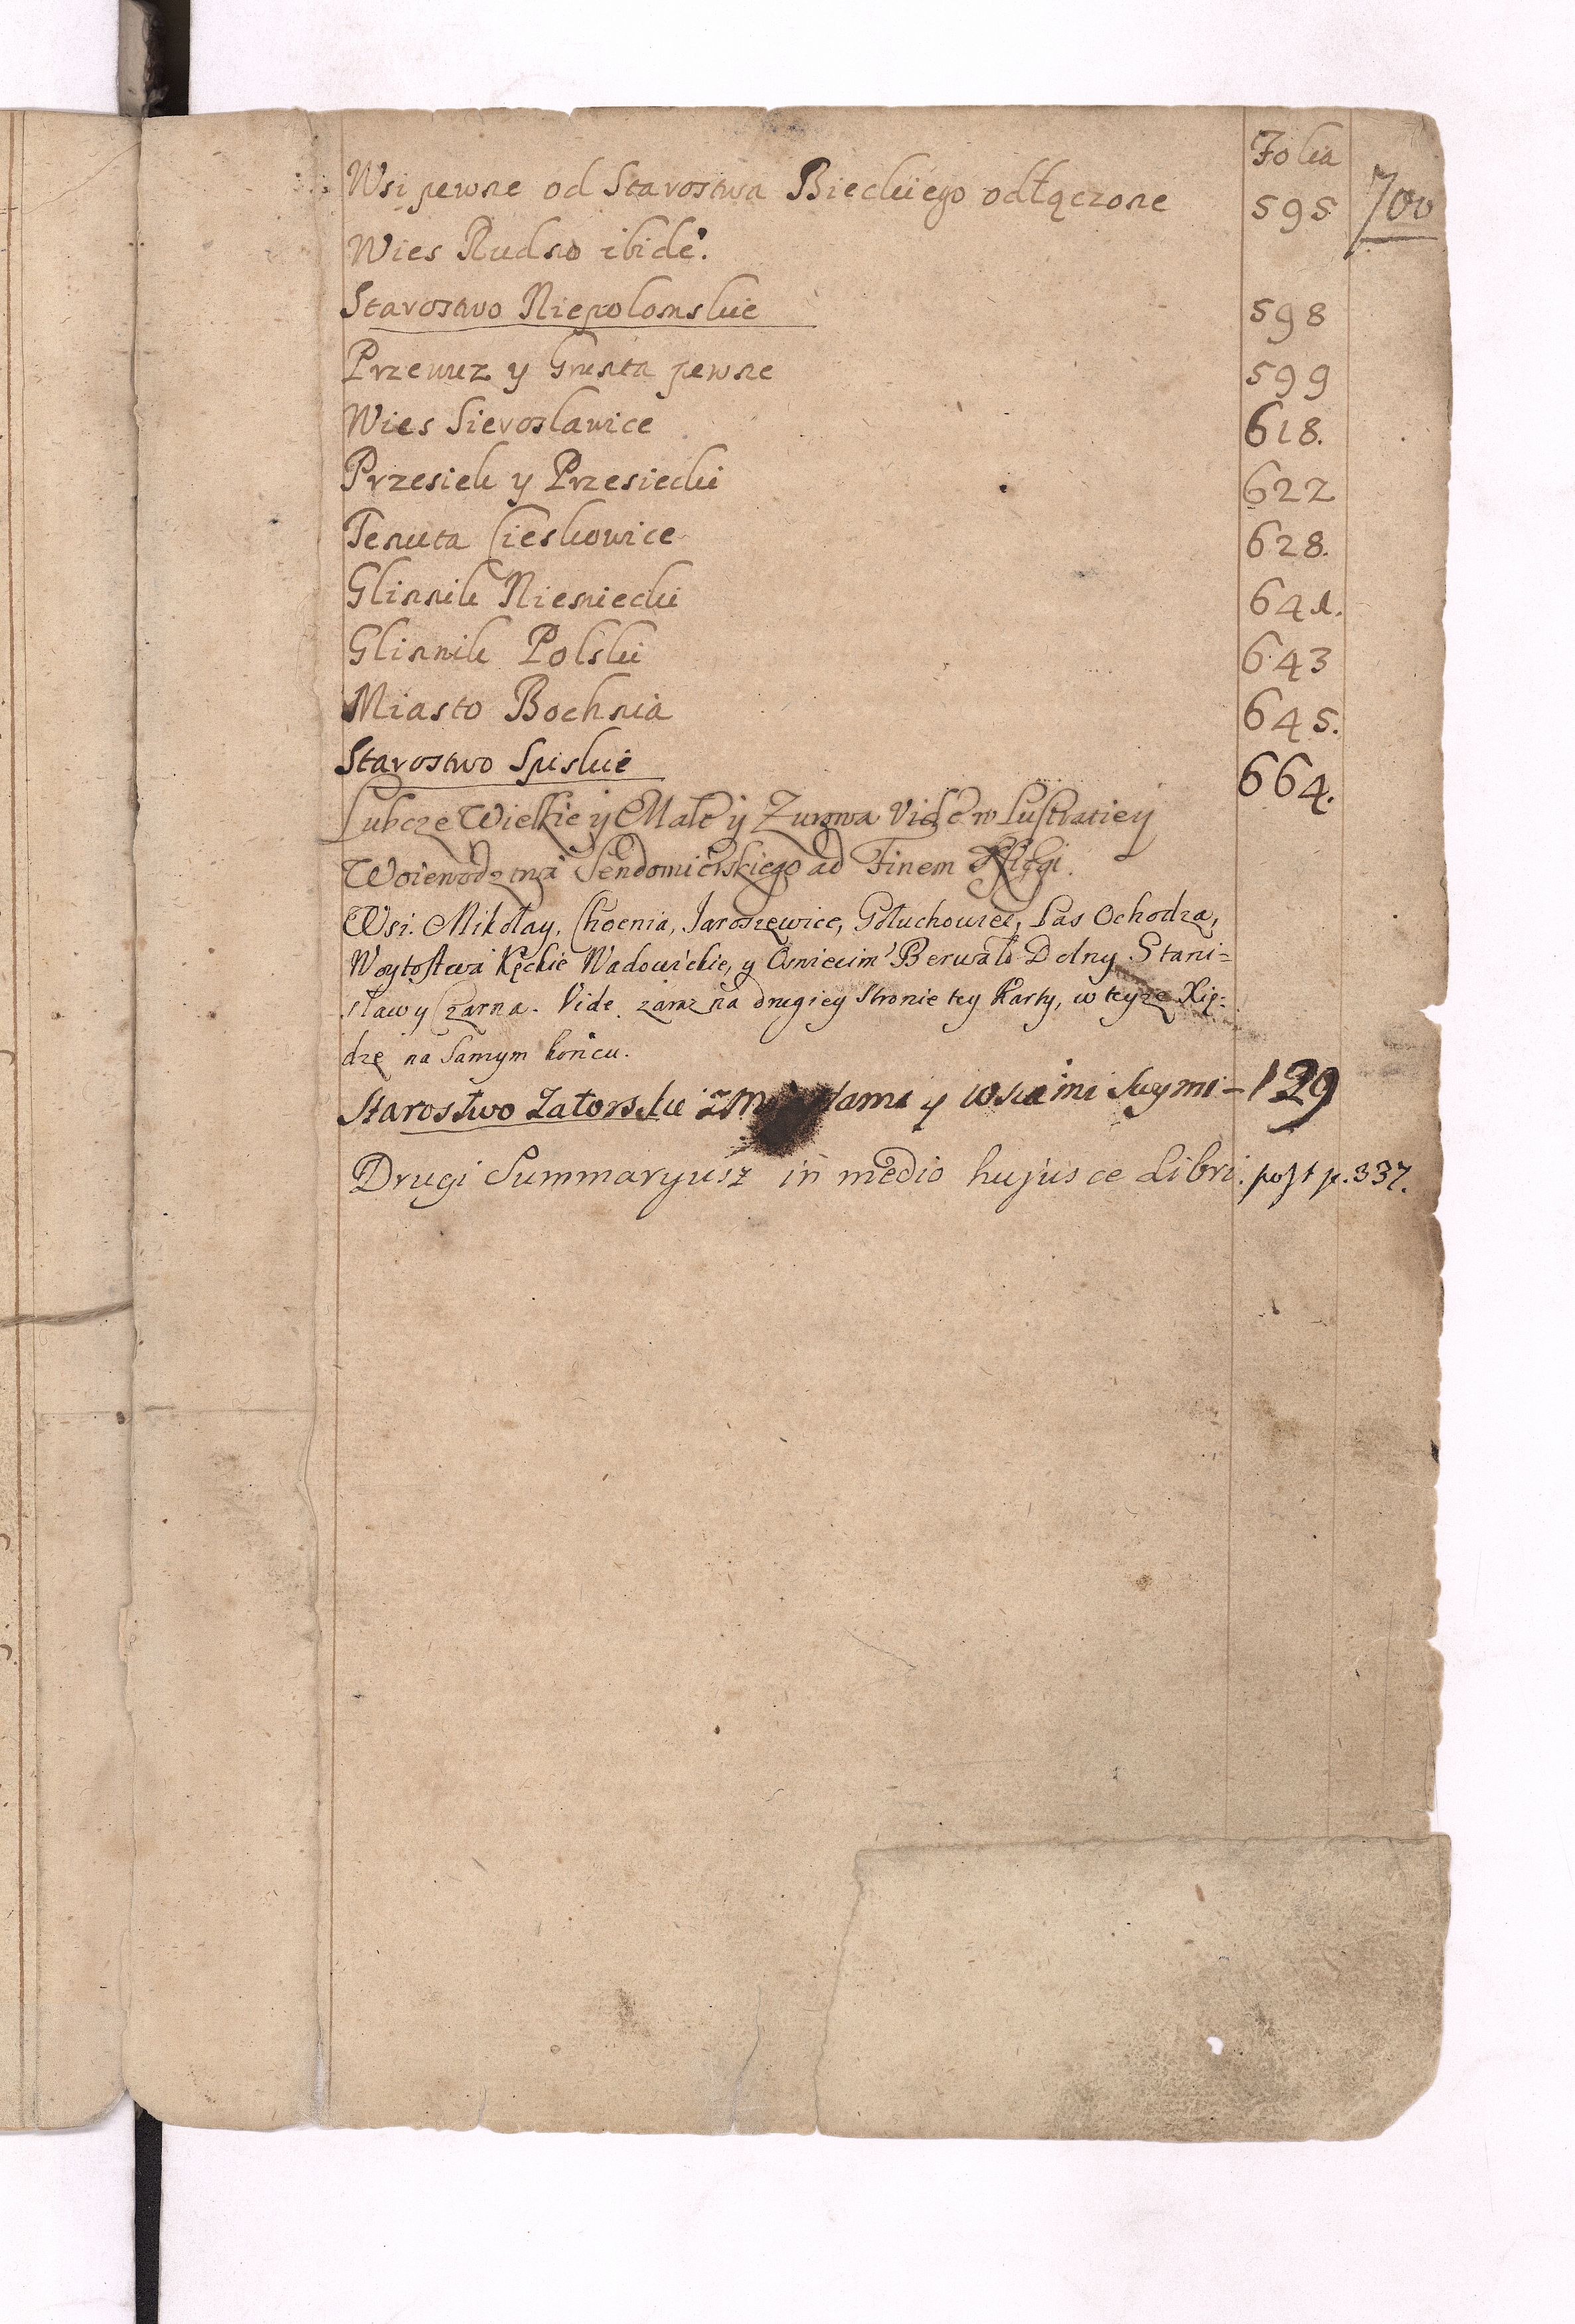 Folia
Wsi pewne od Starostwa Bieckiego odłączone 595 700
Wies Rudno ibidē.
Starostwo Niepolomskie 598
Przewuz y Grunta pewne 599
Wies Sieroslawice 618.
Przesiek y Przesiecki 622
Tenuta Cieskowice 628.
Glinnik Niemiecki 641.
Glinnik Polski 643
Miasto Bochnia 645.
Starostwo Spiskie 664.
Lubcze Wielkie y Małe y Zurowa Vide w Lustratiey
Woiewodztwa Sendomierskiego ad Finem Xięgi.
Wsi. Mikołay, Choenia, Jaroszewice, Gołuchowiec, Las Ochodza,
Woytostwa Kęckie Wadowickie, y Oswiecim Berwald Dolny Stani=
sław y Czarna. Vide zaraz na drugiey stronie tey Karty, w teyze Xię=
dze na samym końcu.
Starostwo Zatorskie z y wsiami swymi - 129
Drugi Summaryusz in medio hujusce Libri. post p. 337.